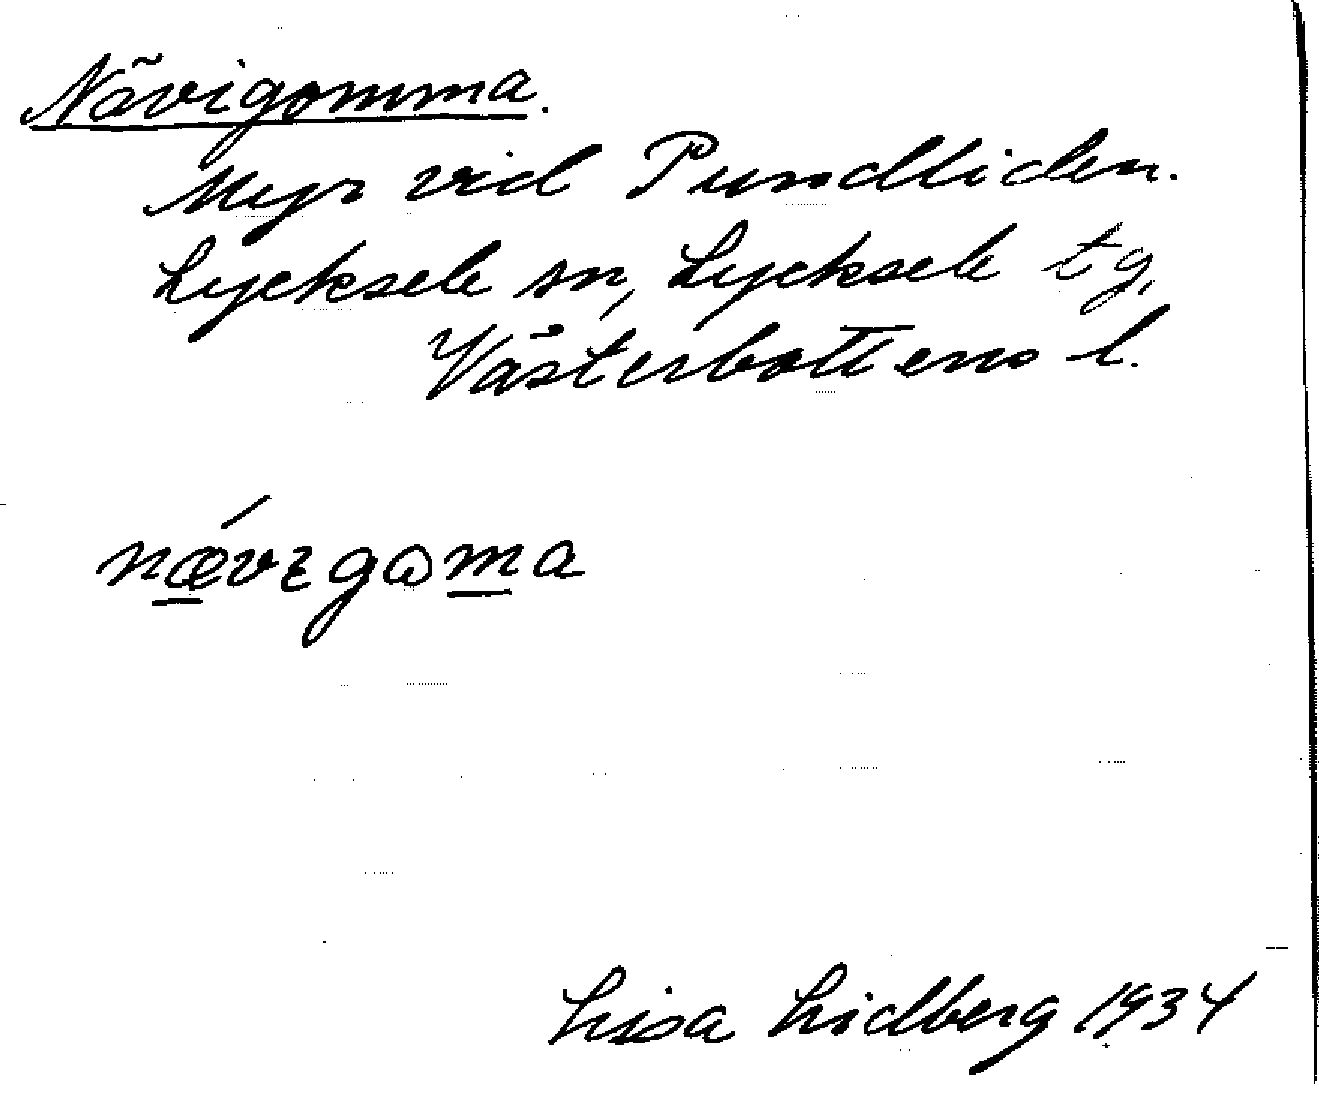 Nävigomma.
Myr vid Pundliden.
Lycksele sn, Lycksele tg,
Västerbottens l.
nǽvɪgωma
Lisa Lidberg 1934